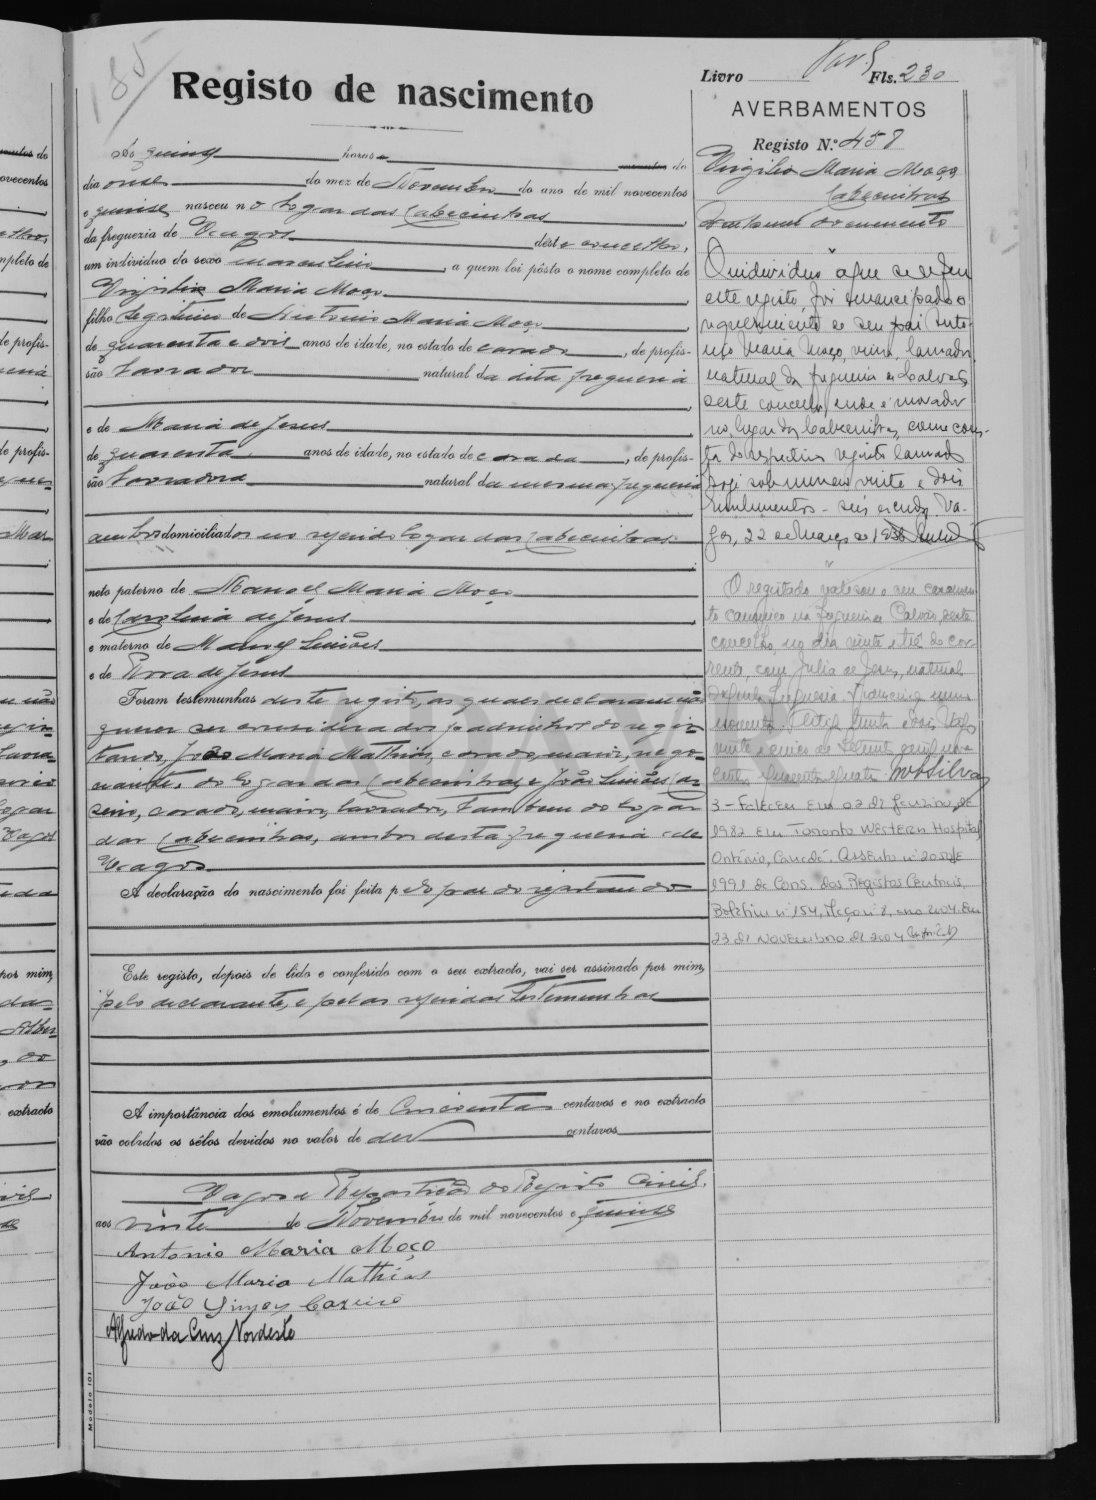 185
Registo de nascimento
Livro Fls. 230
AVERBAMENTOS
Registo N.º 458
Virgilio Maria Moço
Cabecinhas
documento
horas
dia onse do mez de Novembro do ano de mil novecentos
e quinse nasceu no logar das Cabecinhas,
da freguezia de Vagos dêste concelho,
um individuo do sexo masculino, a quem foi pôsto o nome completo de
Virgilio Maria Moço,
filho legitimo de Antonio Maria Moço
de quarenta e dois anos de idade, no estado de casado, de profis-
são lavrador natural da dita freguesia
e de Maria de Jesus,
de quarenta anos de idade, no estado de casada, de profis-
são lavradora natural da mesma freguesia
ambos domiciliados no referido logar das Cabecinhas
neto paterno de Manoel Maria Moço
e de Carolina de Jesus,
e materno de Manoel Simões
e de Rosa de Jesus
Foram testemunhas deste registo, as quaes declararam não
querer ser considerados padrinhos do regis-
tando, João Maria Mathias, casado, maior, nego-
ciante, do logar das Cabecinhas, e João Simões Ca-
seiro, casado, maior, lavrador, tambem do logar
das Cabecinhas, ambos desta freguesia de
Vagos
A declaração do nascimento foi feita pelo pae do registando
Este registo, depois de lido e conferido com o seu extracto, vai ser assinado por mim,
pelo declarante, e pelas referidas testemunhas
A importância dos emolumentos é de cincoenta centavos e no extracto
vão colados os sêlos devidos no valor de dez centavos
Vagos e Repartição do Registo Civil,
aos vinte de Novembro de mil novecentos e quinse
Antonio Maria Moço
João Maria Mathias
João Simões Caseiro
Alfredo da Cruz Nordeste
Modelo 101
O individuo a que se refere
este registo foi emancipado a
requerimento de seu pai Anto-
nio Maria Moço, viuvo, lavrador
natural da freguesia de Calvão,
deste concelho, onde é morador
no lugar das Cabecinhas, como cons-
ta do respectivo registo lavrado
hoje sob numero vinte e dois
Emolumentos - seis escudos. Va-
gos, 22 de Março de 1936
O registado realizou o seu casamen-
to canonico na freguesia de Calvão, deste
concelho, no dia vinte e três do cor-
rente, com Julia de Jesus, natural
daquela freguesia.
Vagos
vinte e cinco de
novecentos quarenta e quatro
3 - Faleceu em 02 de Janeiro de
1982 em Toronto Western Hospital,
Ontário, Canadá. Assento nº 200 de
1991 da Cons. dos Registos Centrais,
Boletim nº 154, Maço nº 8, ano 2004. Em
23 de Novembro de 2004